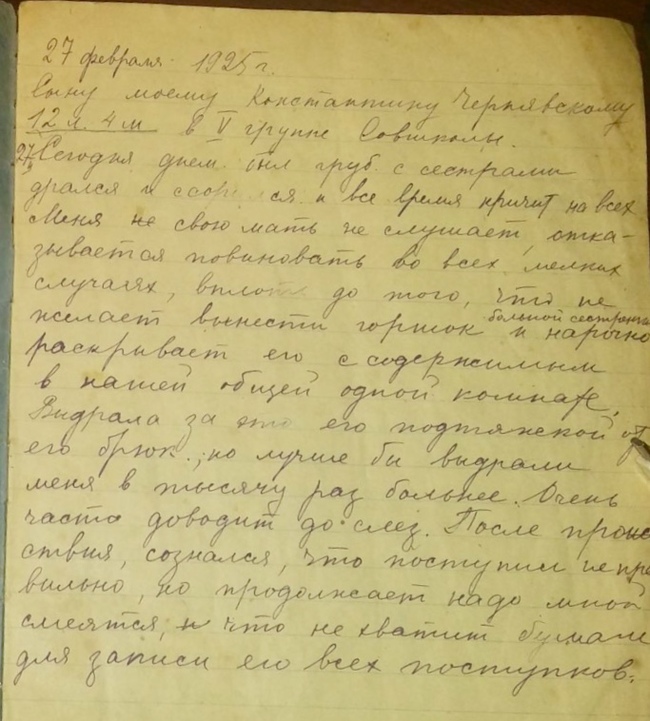 27 февраля 1925 г.
Сыну моему Константину Чернявскому
12 л. 4 м в V группе Совшколы.
27. Сегодня днем был груб с сестрами
дрался и ссорился и все время кричит на всех
Меня не свою мать не слушает, отка-
зывается повиновать во всех мелких
случаях, вплоть до того, что не
желает вынести горшок большой сестренки и нарочно
раскрывает его с содержимым
в нашей общей одной комнате,
Выдрала за это его подтяжкой от
его брюк., но лучше бы выдрали
меня в тысячу раз больнее. Очень
часто доводит до слез. После проис
ствия, сознался, что поступил не пра
вильно, но продолжает надо мной
смеятся, и что не хватит бумаги
для записи его всех поступков.